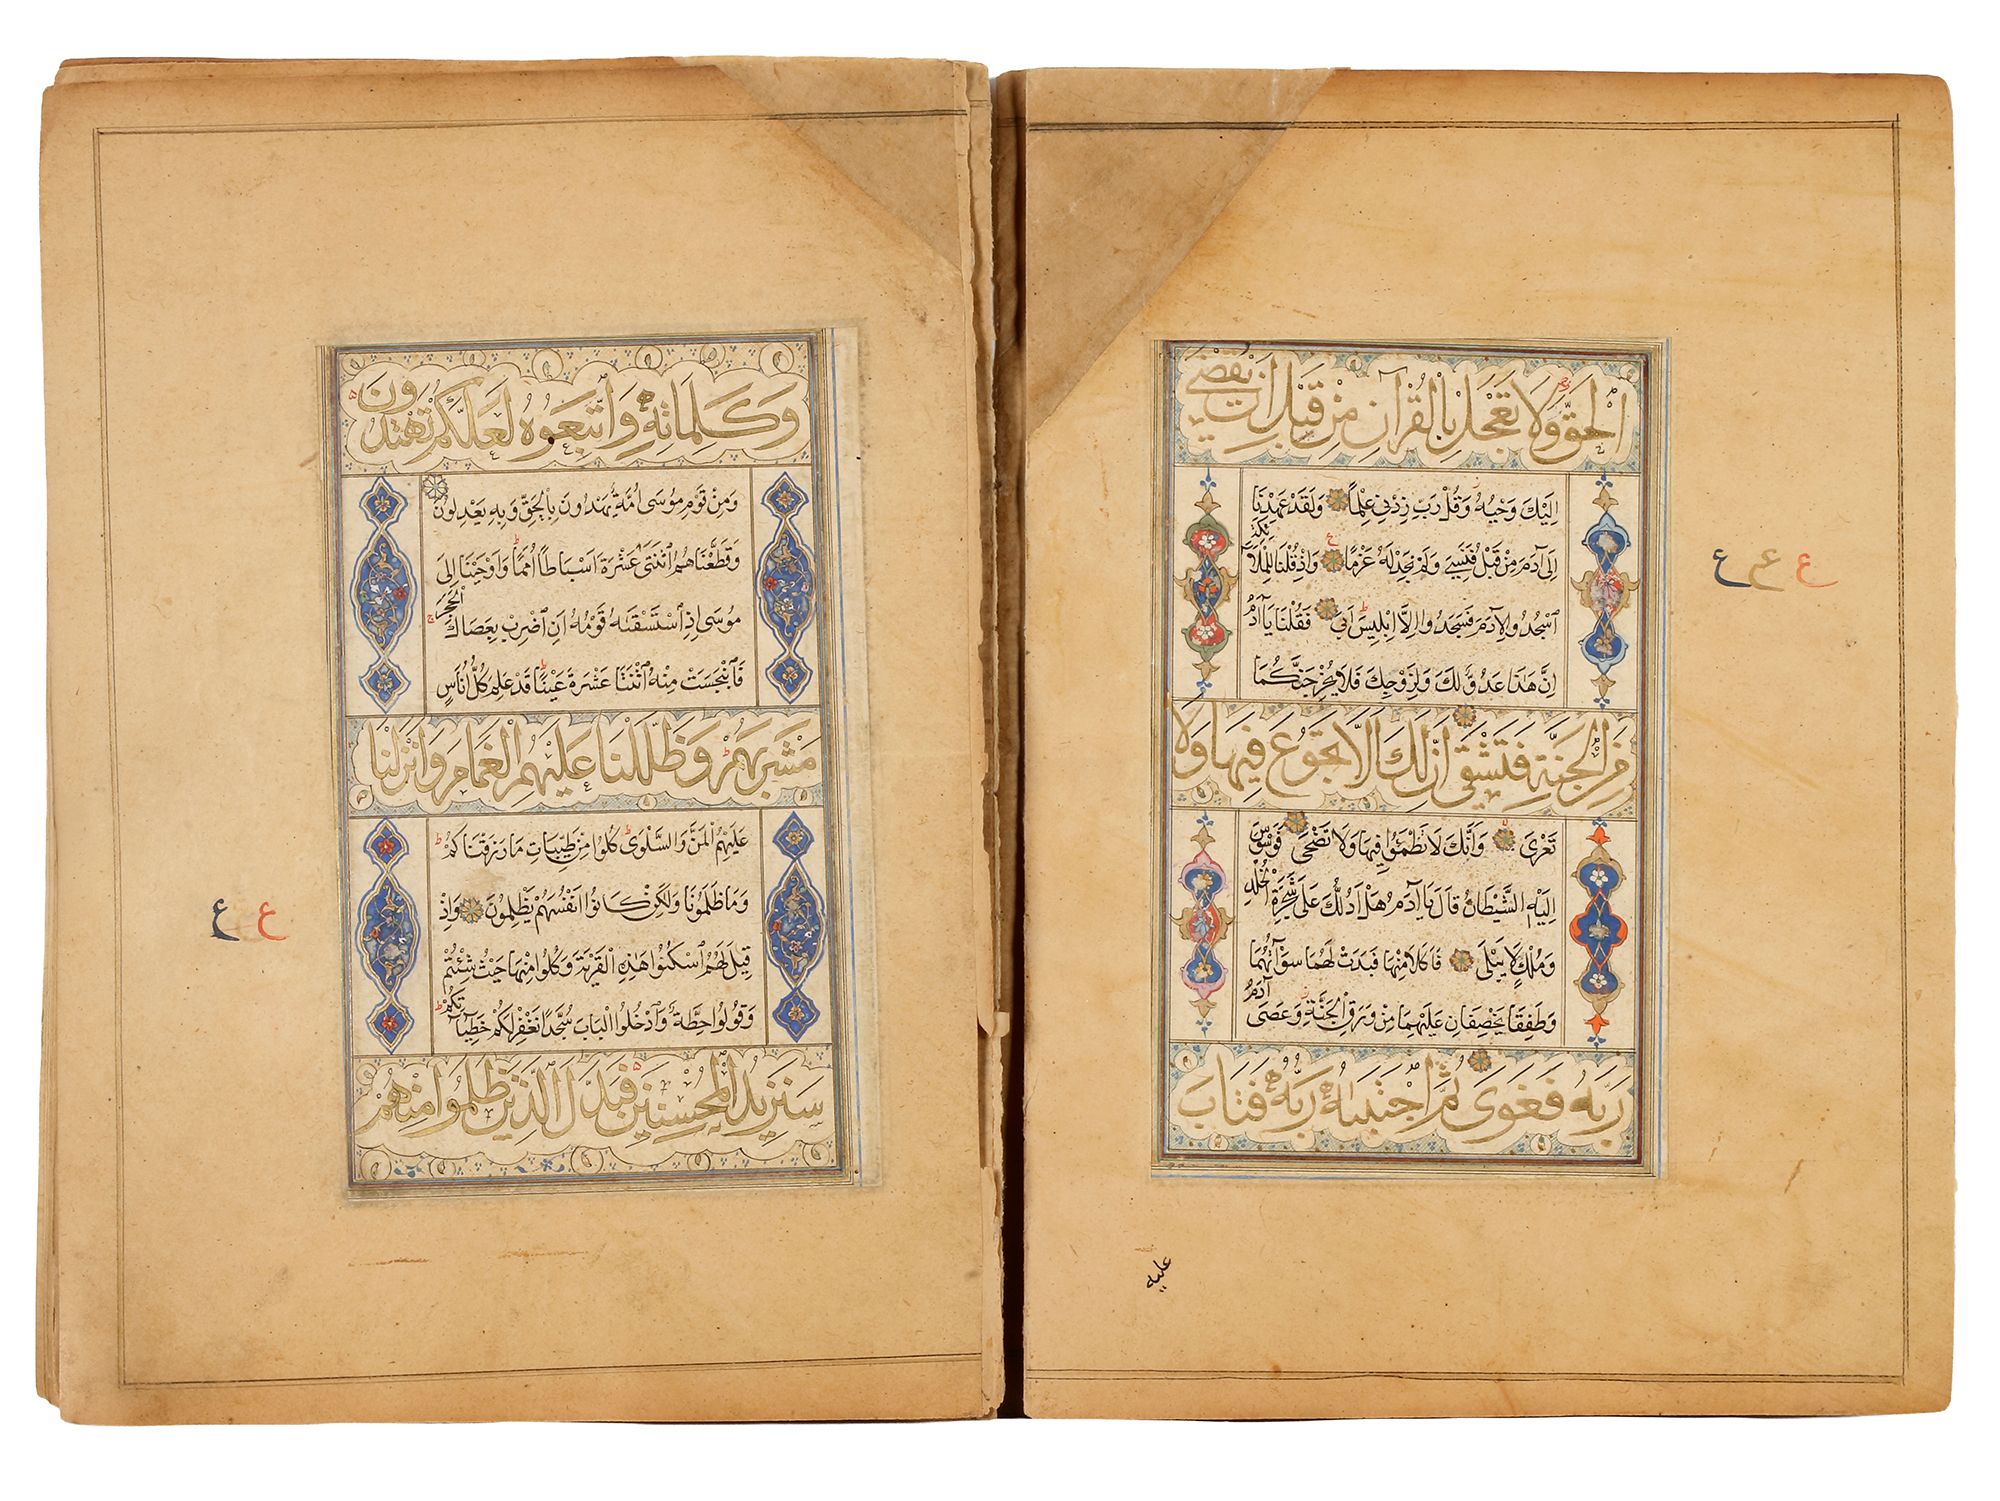 الْحَقُّ وَلَا تَعْجَلْ بِالْقُرْآنِ مِنْ قَبْلِ اَنْ يُقْضٰى
اِلَيْكَ وَحْيُهُ وَقُلْ رَبِّ زِدْنِي عِلْمًا وَلَقَدْ عَهِدْنَا
اِلٰى آدَمَ مِنْ قَبْلُ فَنَسِيَ وَلَمْ نَجِدْ لَهُ عَزْمًا وَاِذْ قُلْنَا لِلْمَلَآئِكَةِ
اسْجُدُوا لِآدَمَ فَسَجَدُوا اِلَّا اِبْلِيسَ اَبٰى فَقُلْنَا يَا آدَمُ
اِنَّ هٰذَا عَدُوٌّ لَكَ وَلِزَوْجِكَ فَلَا يُخْرِجَنَّكُمَا
مِنَ الْجَنَّةِ فَتَشْقٰى اِنَّ لَكَ اَلَّا تَجُوعَ فِيهَا وَلَا
تَعْرٰى وَاَنَّكَ لَا تَظْمَؤُا فِيهَا وَلَا تَضْحٰى فَوَسْوَسَ
اِلَيْهِ الشَّيْطَانُ قَالَ يَا آدَمُ هَلْ اَدُلُّكَ عَلٰى شَجَرَةِ الْخُلْدِ
وَمُلْكٍ لَا يَبْلٰى فَاَكَلَا مِنْهَا فَبَدَتْ لَهُمَا سَوْآتُهُمَا
وَطَفِقَا يَخْصِفَانِ عَلَيْهِمَا مِنْ وَرَقِ الْجَنَّةِ وَعَصٰى آدَمُ
رَبَّهُ فَغَوٰى ثُمَّ اجْتَبٰىهُ رَبُّهُ فَتَابَ
عليه
ع ع ع
وَكَلِمَاتِهِ وَاتَّبِعُوهُ لَعَلَّكُمْ تَهْتَدُونَ
وَمِنْ قَوْمِ مُوسٰى اُمَّةٌ يَهْدُونَ بِالْحَقِّ وَبِهِ يَعْدِلُونَ
وَقَطَّعْنَاهُمُ اثْنَتَيْ عَشْرَةَ اَسْبَاطًا اُمَمًا وَاَوْحَيْنَا اِلٰى
مُوسٰى اِذِ اسْتَسْقٰىهُ قَوْمُهُ اَنِ اضْرِبْ بِعَصَاكَ الْحَجَرَ
فَانْبَجَسَتْ مِنْهُ اثْنَتَا عَشْرَةَ عَيْنًا قَدْ عَلِمَ كُلُّ اُنَاسٍ
مَشْرَبَهُمْ وَظَلَّلْنَا عَلَيْهِمُ الْغَمَامَ وَاَنْزَلْنَا
عَلَيْهِمُ الْمَنَّ وَالسَّلْوٰى كُلُوا مِنْ طَيِّبَاتِ مَا رَزَقْنَاكُمْ
وَمَا ظَلَمُونَا وَلٰكِنْ كَانُوا اَنْفُسَهُمْ يَظْلِمُونَ وَاِذْ
قِيلَ لَهُمُ اسْكُنُوا هٰذِهِ الْقَرْيَةَ وَكُلُوا مِنْهَا حَيْثُ شِئْتُمْ
وَقُولُوا حِطَّةٌ وَادْخُلُوا الْبَابَ سُجَّدًا نَغْفِرْ لَكُمْ خَطِيآتِكُمْ
سَنَزِيدُ الْمُحْسِنِينَ فَبَدَّلَ الَّذِينَ ظَلَمُوا مِنْهُمْ
ع ع